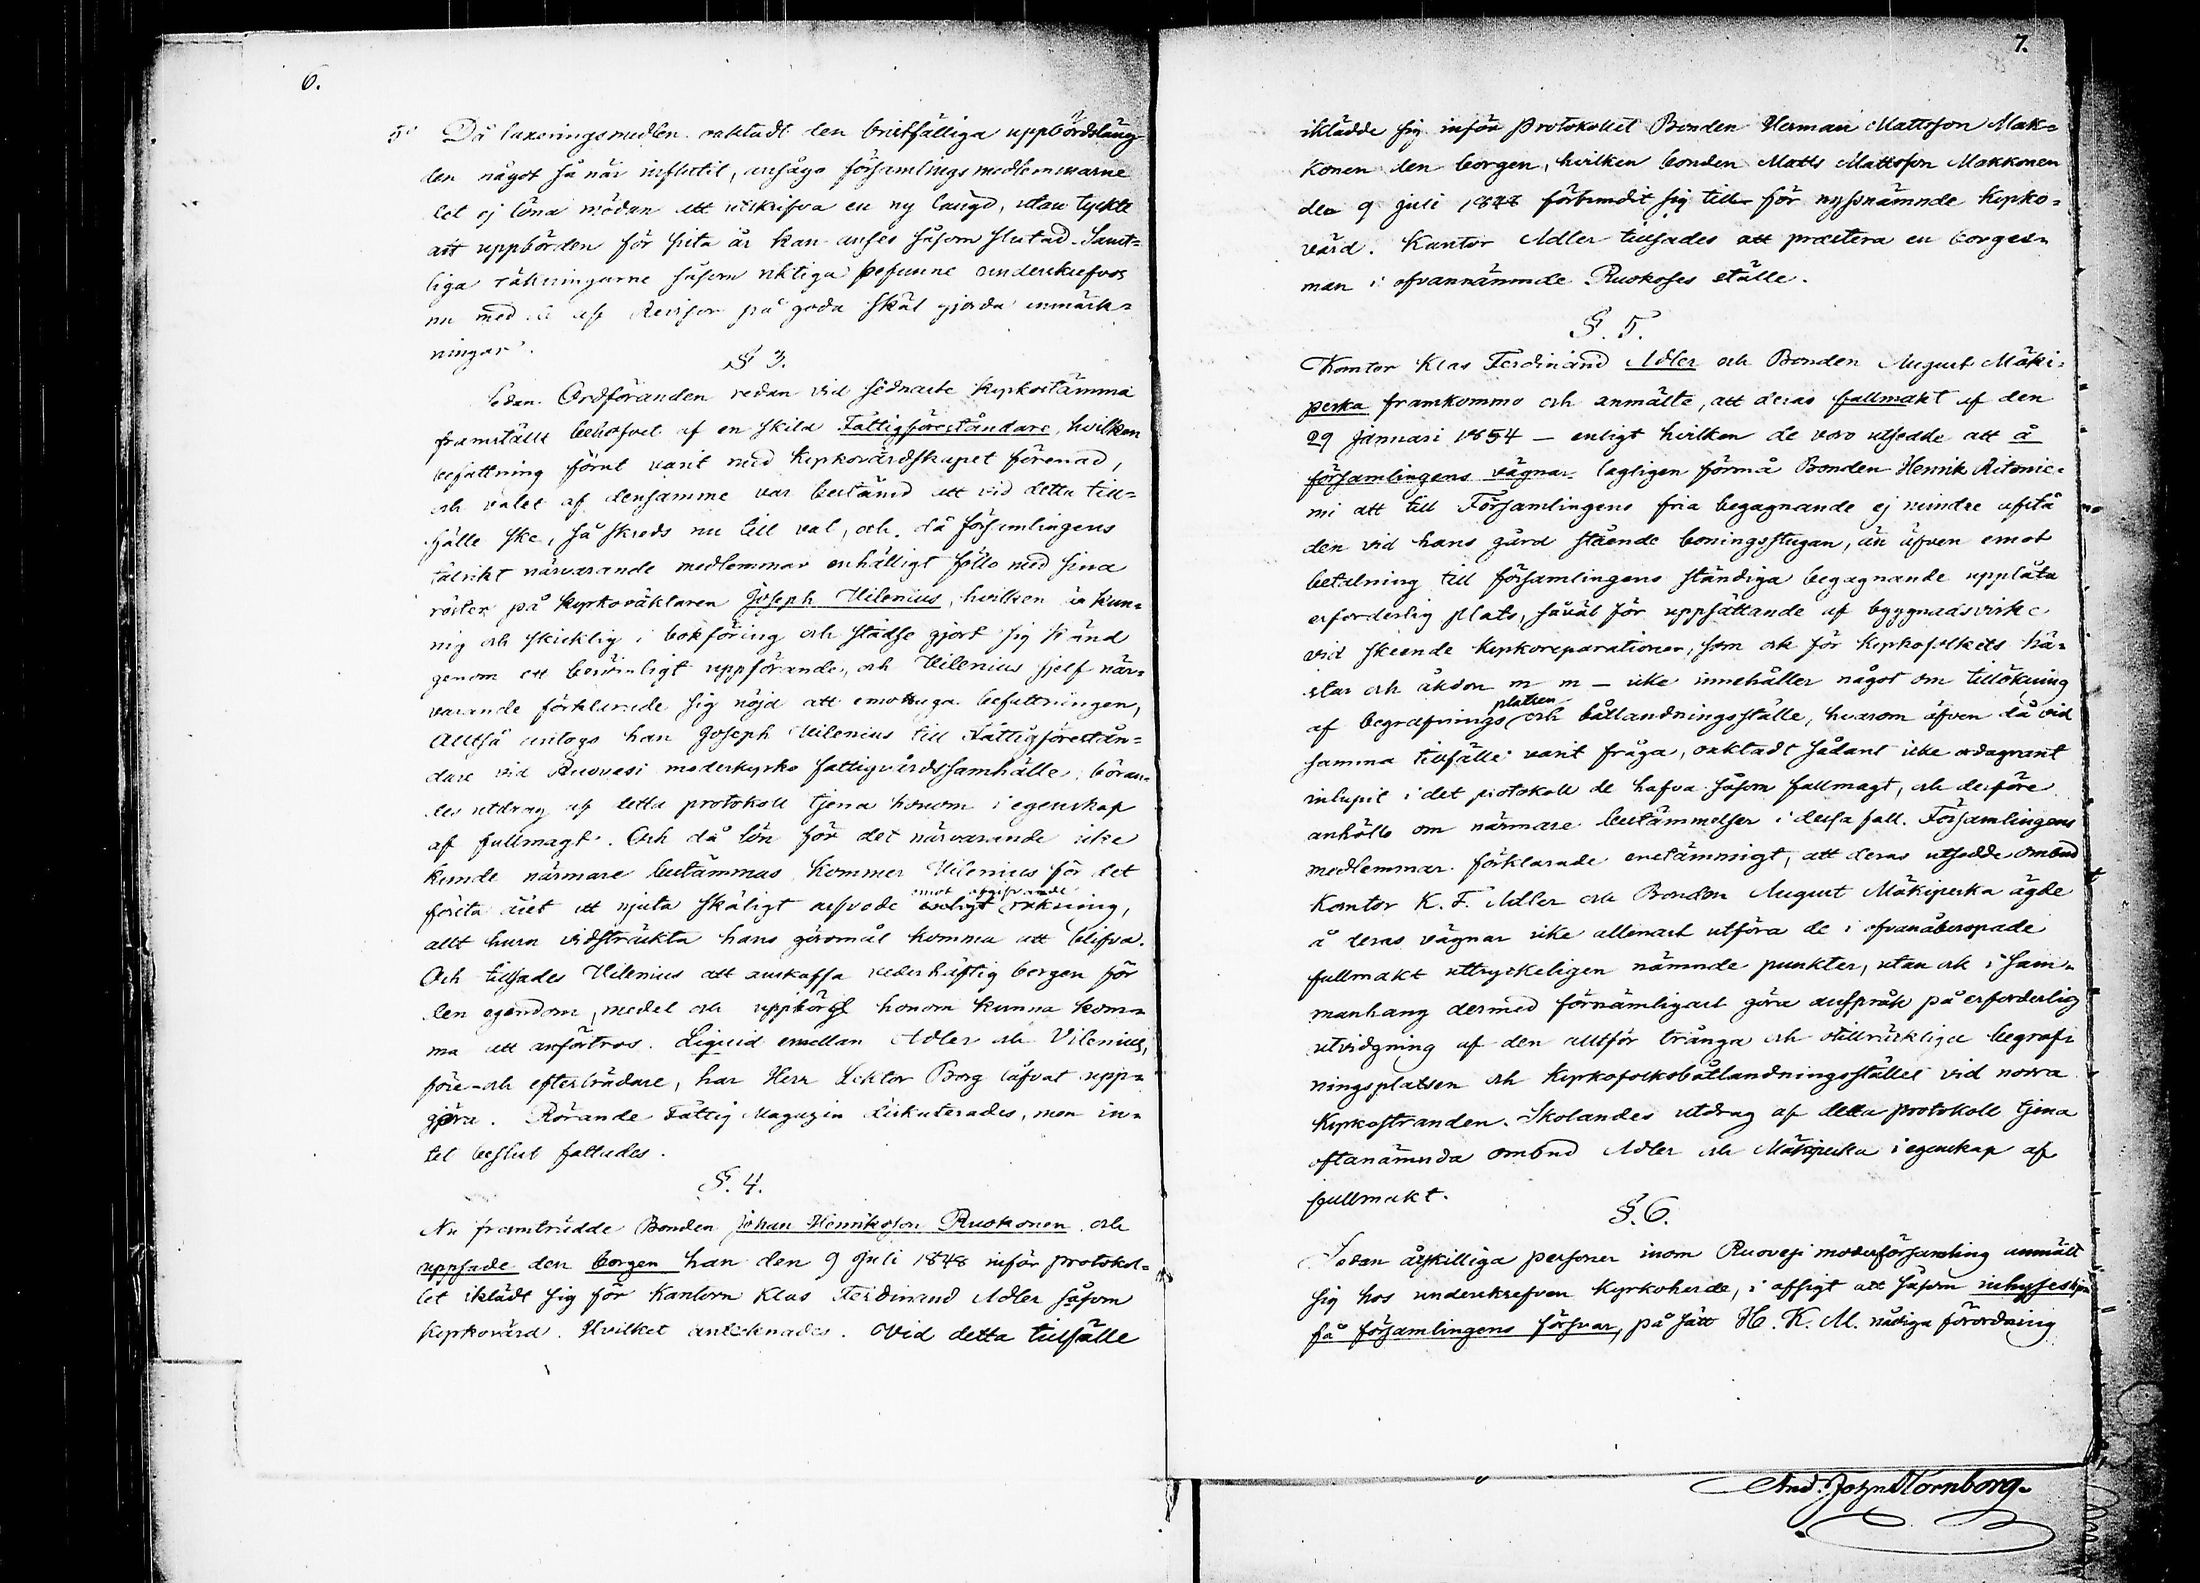 6.
5o Då taxeringsmedlen oaktadt den bristfälliga uppbördsläng-
den något så när influtit, ansågo församlingsmedlemmarne
det ej löna mödan att utskrifva en ny längd, utan tyckte
att uppbörden för sista år kan anses såsom slutad. Samt-
liga räkningarne såsom riktiga befunne underskrefvos
nu med de af Revisor på goda skäl gjorda anmärk-
ningar.
§ 3.
Sedan Ordföranden redan vid sednaste kyrkostämma
framställt behofvet af en skild Fattigföreståndare, hvilken
befattning förut varit med kyrkovärdskapet förenad,
och valet af densamme var bestämd att vid detta till-
fälle ske, så skreds nu till val, och då församlingens
talrikt närvarande medlemmar enhälligt föllo med sina
röster på kyrkoväktaren Joseph Vilenius, hvilken är kun-
nig och skicklig i bokföring och städse gjort sig känd
genom ett berömligt uppförande, och Vilenius sjelf när-
varande förklarade sig nöjd att emottaga befattningen,
Alltså antogs han Joseph Vilenius till Fattigförestån-
dare vid Ruovesi moderkyrko fattigvårdssamhälle, böran-
des utdrag af detta protokoll tjena honom i egenskap
af fullmagt. Och då lön för det närvarande icke
kunde närmare bestämmas, kommer Vilenius för det
första året att njuta skäligt arfvode enligt räkning,
emot afgifvande
allt huru vidsträckta hans göromål komma att blifva.
Och tillsades Vilenius att anskaffa vederhäftig borgen för
den egendom, medel och uppbörd honom kunna kom-
ma att anförtros. Liqvid emellan Adler och Vilenius,
före- och efterträdare, har Herr Lektor Borg låfvat upp-
göra. Rörande Fattig Magazin diskuterades, men in-
tet beslut fattades.
§. 4.
Nu framträdde Bonden Johan Henriksson Ruokonen och
uppsade den borgen han den 9 Juli 1848 inför protokol-
let iklädt sig för Kantorn Klas Ferdinand Adler såsom
kyrkovärd. Hvilket antecknades. Vid detta tillfälle
7.
iklädde sig inför Protokollet Bonden Herman Mattsson Mak-
konen den borgen, hvilken bonden Matts Mattsson Makkonen
den 9 Juli 1848 förbundit sig till för nyssnämnde kyrko-
värd. Kantor Adler tillsades att præstera en borges-
man i ofvannämnde Ruokoses ställe.
§. 5.
Kantor Klas Ferdinand Adler och Bonden August Mäki-
peska framkommo och anmälte, att deras fullmakt af den
29 Januari 1854 – enligt hvilken de voro utsedde att å
församlingens vägnar lagligen förmå Bonden Henrik Ritonie-
mi att till Församlingens fria begagnande ej mindre afstå
den vid hans gård stående boningsstugan, än äfven emot
betalning till församlingens ständiga begagnande upplåta
erforderlig plats, såväl för uppsättande af byggnadsvirke
vid skeende kyrkoreparationer, som ock för kyrkofolkets hä-
star och åkdon m m – icke innehåller något om tillökning
platsen
af begrafnings och båtlandningsställe, hvarom äfven då vid
samma tillfälle varit fråga, oaktadt sådant icke ordagrant
inlupit i det protokoll de hafva såsom fullmagt, och derföre
anhöllo om närmare bestämmelser i dessa fall. Församlingens
medlemmar förklarade enstämmigt, att deras utsedde ombud
Kantor K. F. Adler och Bonden August Mäkipeska ägde
å deras vägnar icke allenast utföra de i ofvanåberopade
fullmakt uttryckeligen nämnde punkter, utan ock i sam-
manhang dermed förnämligast göra anspråk på erforderlig
utvidgning af den alltför trånga och otillräckliga begraf-
ningsplatsen och kyrkofolksbåtlandningsstället vid norra
kyrkostranden. Skolandes utdrag af detta protokoll tjena
oftanämnda ombud Adler och Mäkipeska i egenskap af
fullmakt.
§. 6.
Sedan åtskilliga personer inom Ruovesi moderförsamling anmält
sig hos underskrefven kyrkoherde, i afsigt att såsom inhyseshjon
få församlingens försvar, på sätt H. K. M. nådiga förordning
And. Joh. Hornborg.